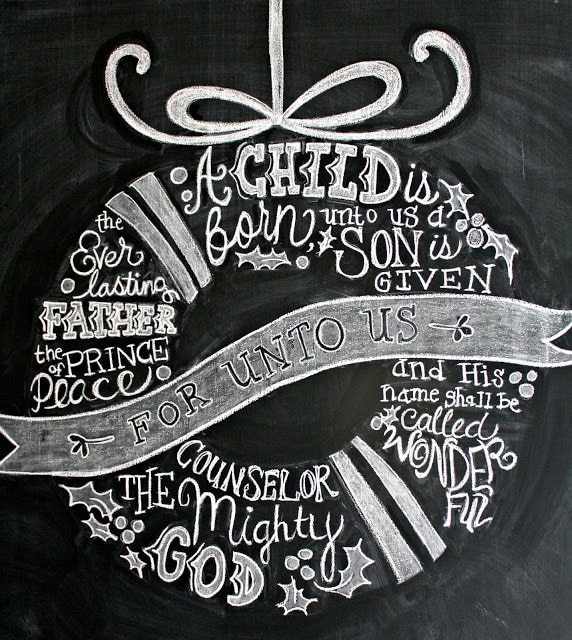 FOR UNTO US
A CHILD is
born,
unto us a
SON is
GIVEN
and His
name shall be
called
WONDER
FUL
COUNSELOR
THE Mighty
GOD
the
Ever
lasting
FATHER
the PRINCE
of
Peace